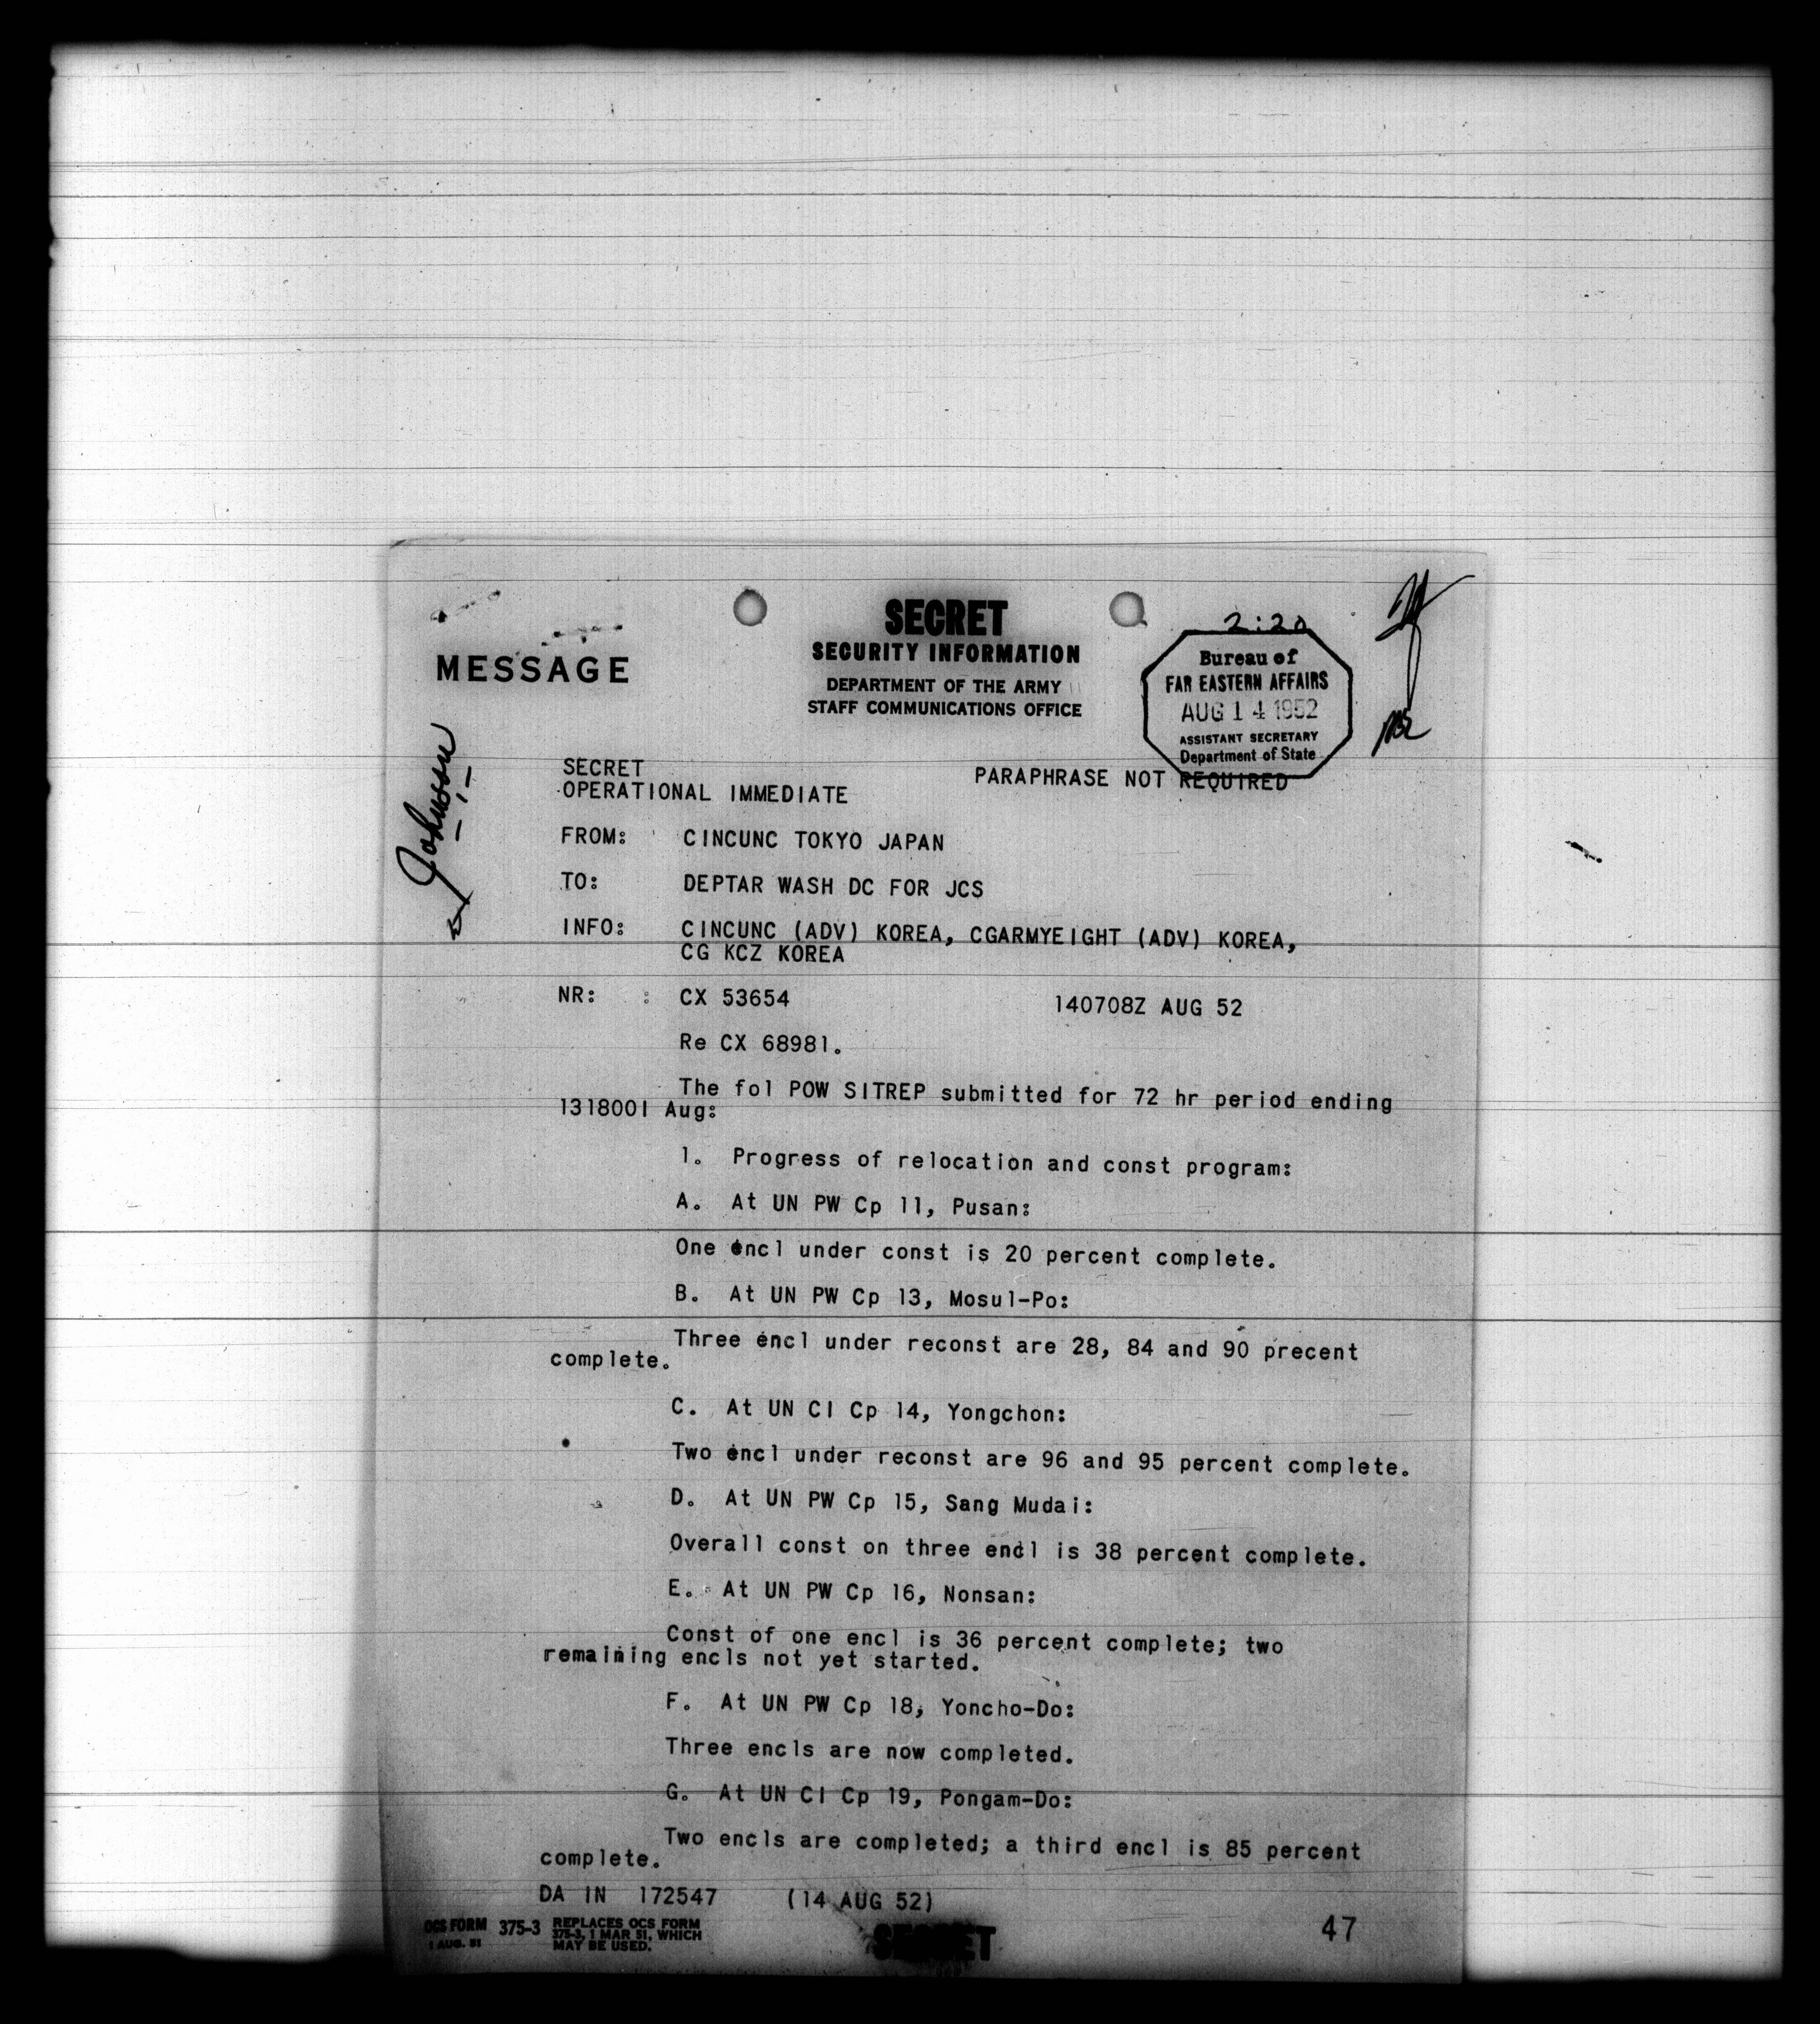 SECRET
SECURITY INFORMATION
MESSAGE
DEPARTMENT OF THE ARMY
STAFF COMMUNICATIONS OFFICE
2:20
Bureau of
FAR EASTERN AFFAIRS
AUG 14 1952
ASSISTANT SECRETARY
Department of State
Johnson
SECRET PARAPHRASE NOT REQUIRED
OPERATIONAL IMMEDIATE
FROM: CINCUNC TOKYO JAPAN
TO: DEPTAR WASH DC FOR JCS
INFO: CINCUNC (ADV) KOREA, CGARMYEIGHT (ADV) KOREA,
CG KCZ KOREA
NR: : CX 53654 140708Z AUG 52
Re CX 68981.
The fol POW SITREP submitted for 72 hr period ending
131800I Aug:
1. Progress of relocation and const program:
A. At UN PW Cp 11, Pusan:
One encl under const is 20 percent complete.
B. At UN PW Cp 13, Mosul-Po:
Three encl under reconst are 28, 84 and 90 precent
complete.
C. At UN CI Cp 14, Yongchon:
Two encl under reconst are 96 and 95 percent complete.
D. At UN PW Cp 15, Sang Mudai:
Overall const on three encl is 38 percent complete.
E. At UN PW Cp 16, Nonsan:
Const of one encl is 36 percent complete; two
remaining encls not yet started.
F. At UN PW Cp 18, Yoncho-Do:
Three encls are now completed.
G. At UN CI Cp 19, Pongam-Do:
Two encls are completed; a third encl is 85 percent
complete.
DA IN 172547 (14 AUG 52)
OCS FORM 375-3 REPLACES OCS FORM
1 AUG. 51 375-3, 1 MAR 51, WHICH
MAY BE USED.
SECRET
47